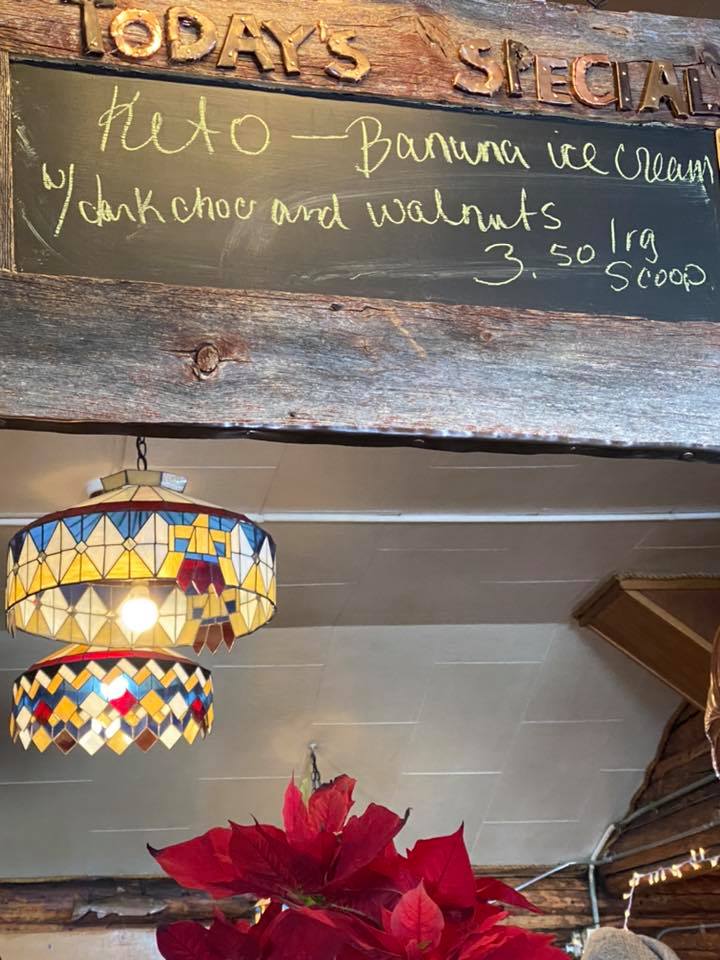 TODAY'S SPECIAL
Keto — Banana ice cream
w/ dark choc and walnuts
3.50 lrg
scoop.